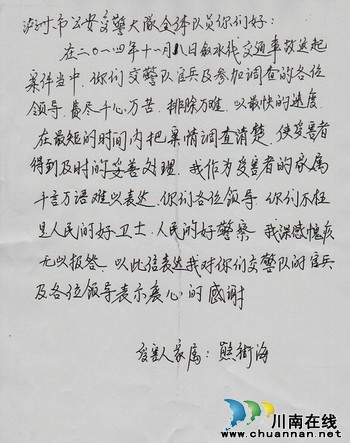 泸州市公安交警大队全体队员你们好:
在二〇一四年十一月八日叙永线交通事故这起
案件当中,你们交警队官兵及参加调查的各位
领导,费尽千心万苦,排除万难,以最快的速度
在最短的时间内把案情调查清楚,使受害者
得到及时的妥善处理,我作为受害者的家属
千言万语难以表达,你们各位领导,你们不枉
是人民的好卫士,人民的好警察,我深感愧疚
无以报答,以此信表达我对你们交警队的官兵
及各位领导表示衷心的感谢
受害人家属:熊街海
川南在线
www.chuannan.net